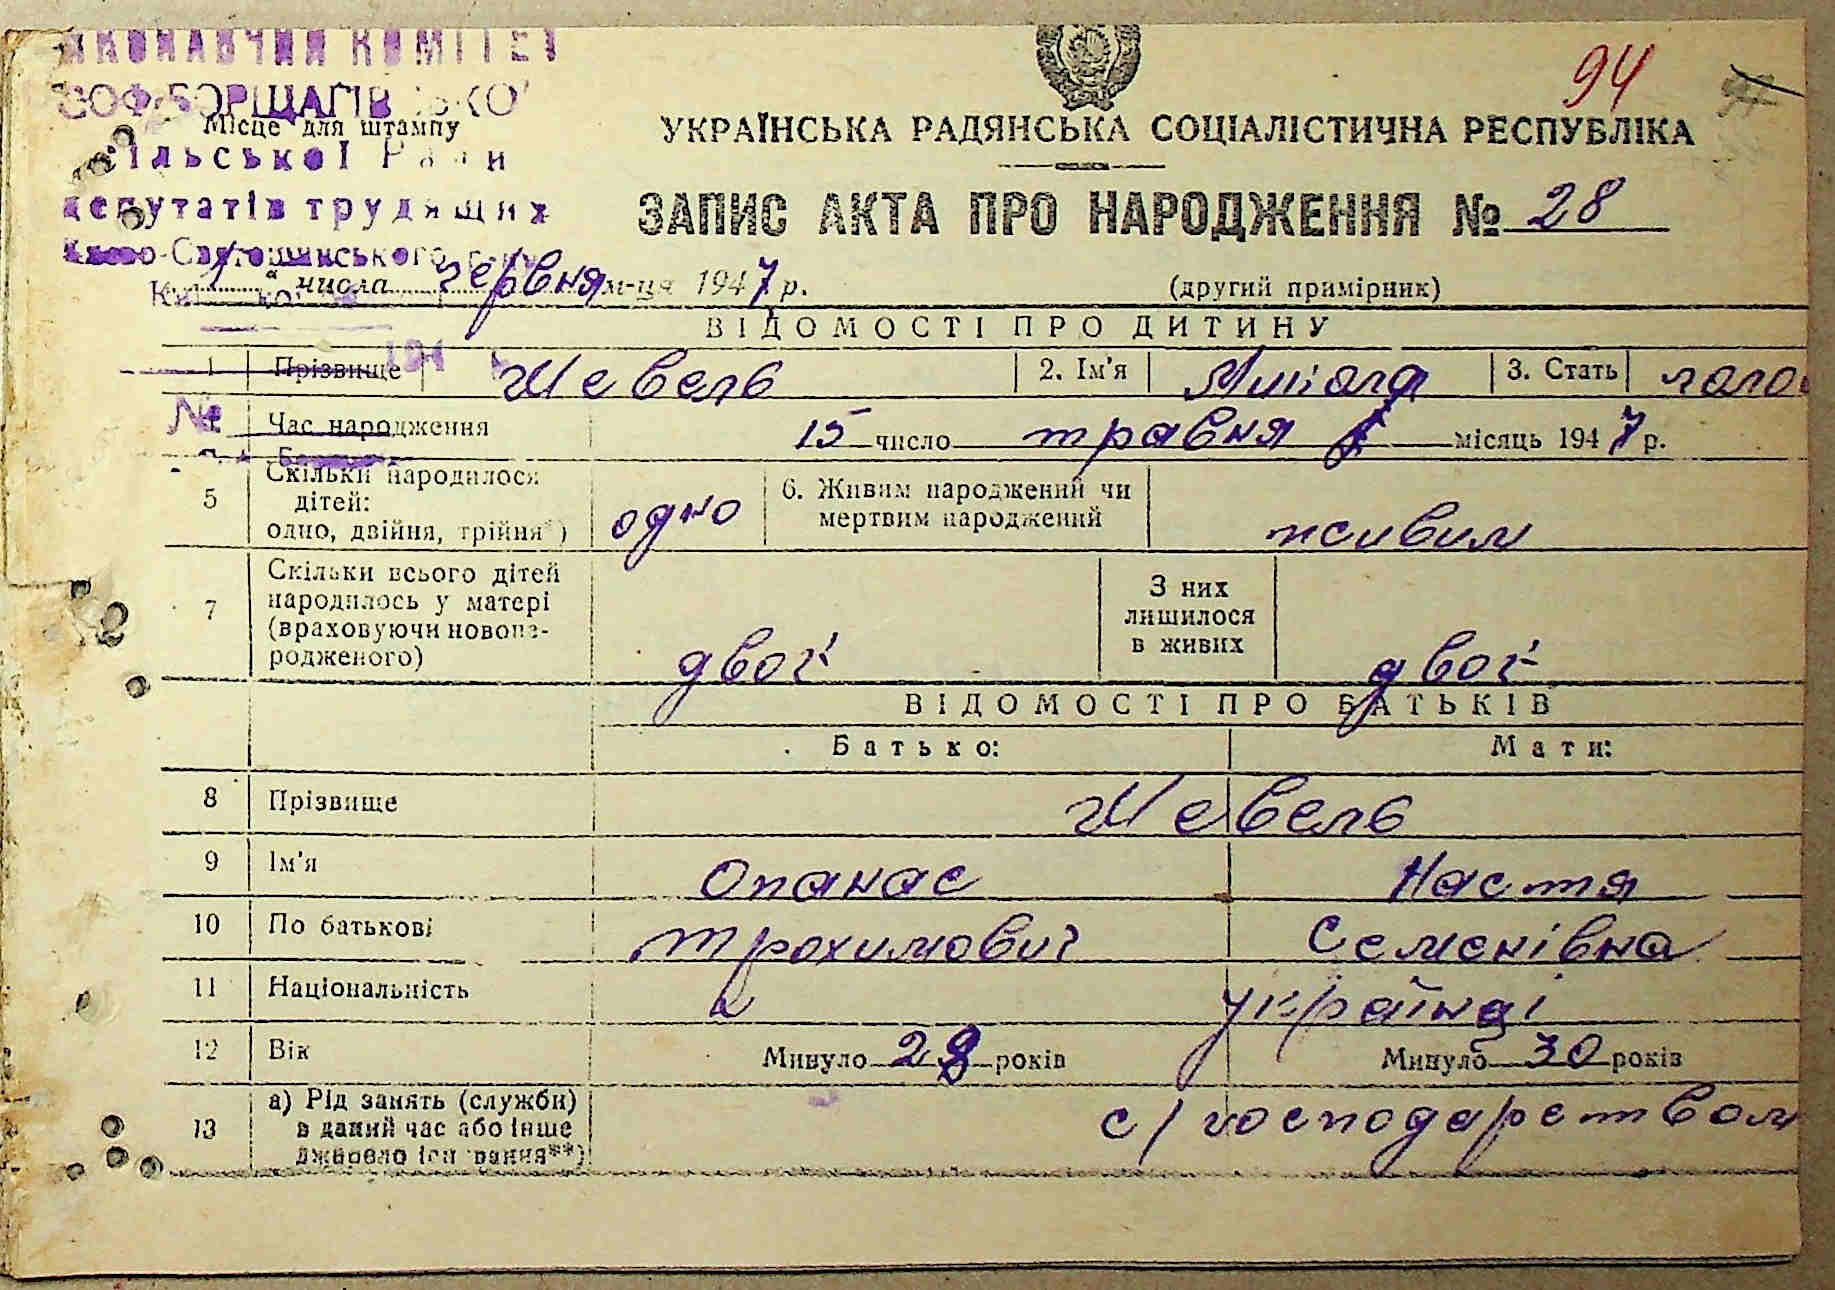 ВИКОНАВЧИЙ КОМІТЕТ
СОФ-БОРЩАГІВСЬКОЇ
Місце для штампу
сільської Ради
депутатів трудящих
Києво-Святошинського
94
УКРАЇНСЬКА РАДЯНСЬКА СОЦІАЛІСТИЧНА РЕСПУБЛІКА
ЗАПИС АКТА ПРО НАРОДЖЕННЯ № 28
1 числа червня м-ця 1947 р. (другий примірник)
ВІДОМОСТІ ПРО ДИТИНУ
1 Прізвище Шевель 2. Ім'я Микола 3. Стать чолов
Час народження 15 число травня місяць 1947 р.
5 Скільки народилося дітей: одно, двійня, трійня*) одно 6. Живим народжений чи мертвим народжений живим
7 Скільки всього дітей народилось у матері (враховуючи новонародженого) двоє З них лишилося в живих двоє
ВІДОМОСТІ ПРО БАТЬКІВ
Батько: Мати:
8 Прізвище Шевель
9 Ім'я Опанас Настя
10 По батькові Трохимович Семенівна
11 Національність українці
12 Вік Минуло 28 років Минуло 30 років
13 а) Рід занять (служби) в даний час або інше джерело існування**) с/господарством